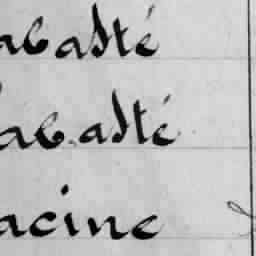 abasté
abasté
acine